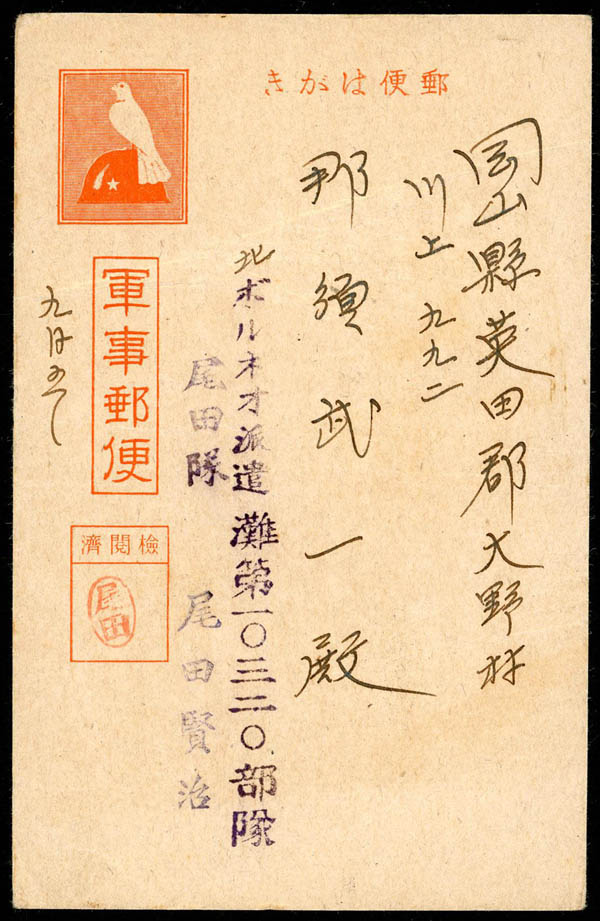 郵便はがき
岡山縣英田郡大野村
川上 九九二
那須武一殿
北ボルネオ派遣 灘第一〇三二〇部隊
尾田隊 尾田賢治
軍事郵便
檢閲濟
尾田